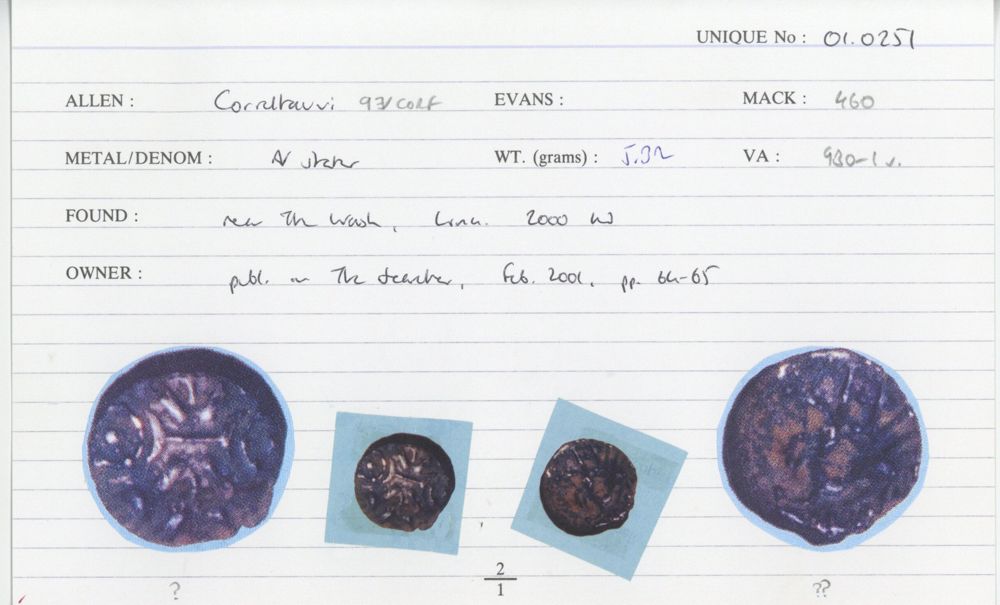 UNIQUE No : 01.0251
ALLEN : Corieltauvi 93/CORF EVANS : MACK : 460
METAL/DENOM : AV stater WT. (grams) : 5.32 VA : 930-1 v.
FOUND : near The Wash, Lincs. 2000
OWNER : publ. in The Searcher, Feb. 2001, pp. 64-65
2
1
? ??